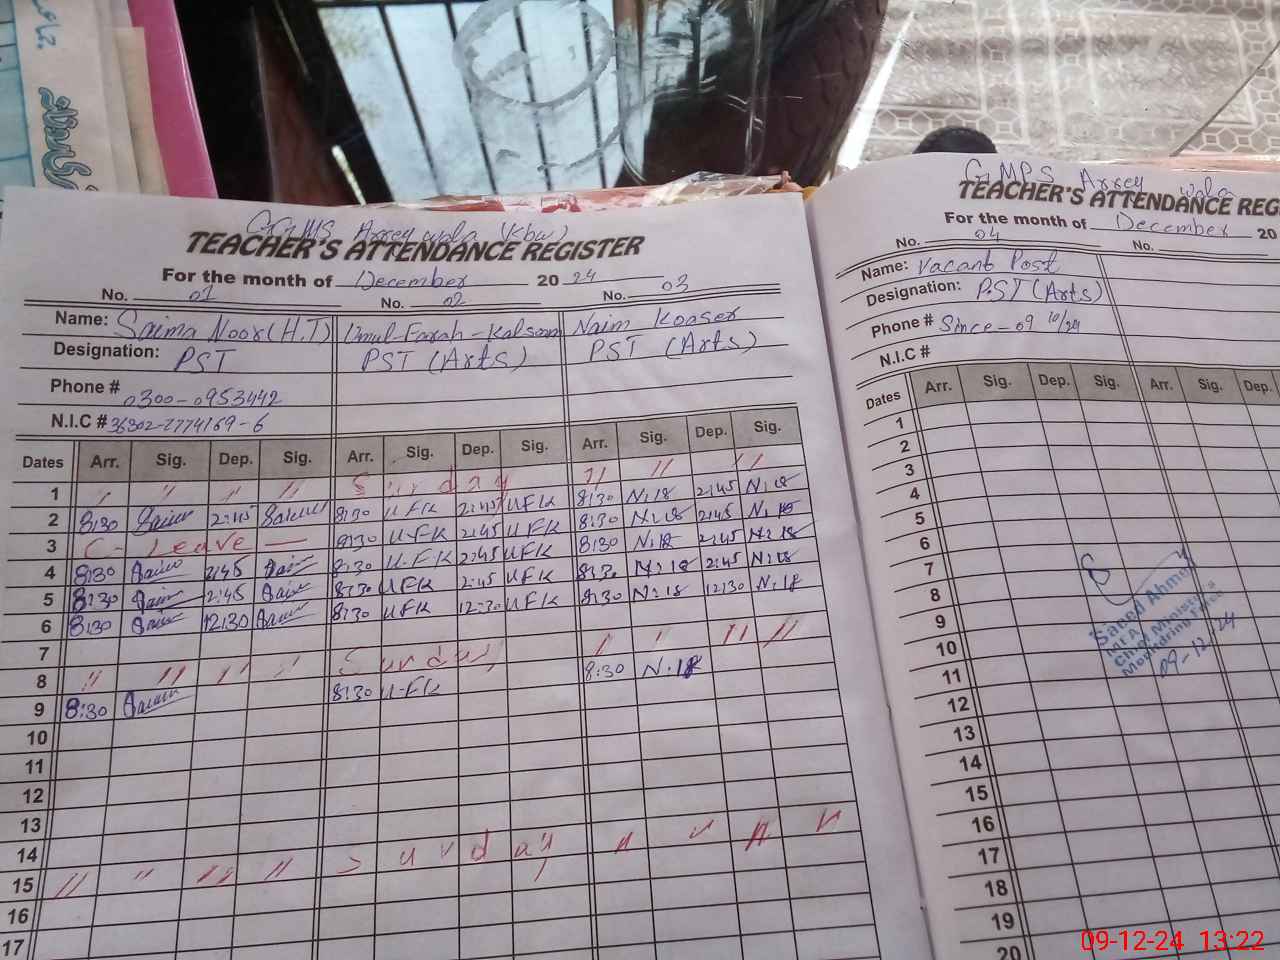 GGMPS Arrey wala (kbw)
TEACHER'S ATTENDANCE REGISTER
For the month of December 2024
No. 01 No. 02 No. 03
Name: Saima Noor (H.T) Umul-Farah-Kalsoom Naim Koaser
Designation: PST PST (Arts) PST (Arts)
Phone # 0300-0953442
N.I.C # 36302-7774169-6
Dates Arr. Sig. Dep. Sig. Arr. Sig. Dep. Sig. Arr. Sig. Dep. Sig.
1 " " " " Sunday " " "
2 8:30 Saima 2:45 Saima 8:30 UFK 2:45 UFK 8:30 N:18 2:45 N:18
3 C-Leave 8:30 UFK 2:45 UFK 8:30 N:18 2:45 N:18
4 8:30 Saima 2:45 Saima 8:30 U.FK 2:45 UFK 8:30 N:18 2:45 N:18
5 8:30 Saima 2:45 Saima 8:30 UFK 2:45 UFK 8:30 N:18 2:45 N:18
6 8:30 Saima 12:30 Saima 8:30 UFK 12:30 UFK 8:30 N:18 12:30 N:18
7
8 " " " " Sunday " " " "
9 8:30 Saima 8:30 U-FK 8:30 N:18
10
11
12
13
14
15 " " " " Sunday " " " "
16
17
GMPS Arrey wala
TEACHER'S ATTENDANCE REG
For the month of December 20
No. 04 No.
Name: Vacant Post
Designation: PST (Arts)
Phone # Since-09 10/24
N.I.C #
Dates Arr. Sig. Dep. Sig. Arr. Sig. Dep.
1
2
3
4
5
6
7
8
9
10
11
12
13
14
15
16
17
18
19
20
Saeed Ahmed
MEA
Chief Minister's
Monitoring Force
09-12-24
09-12-24 13:22